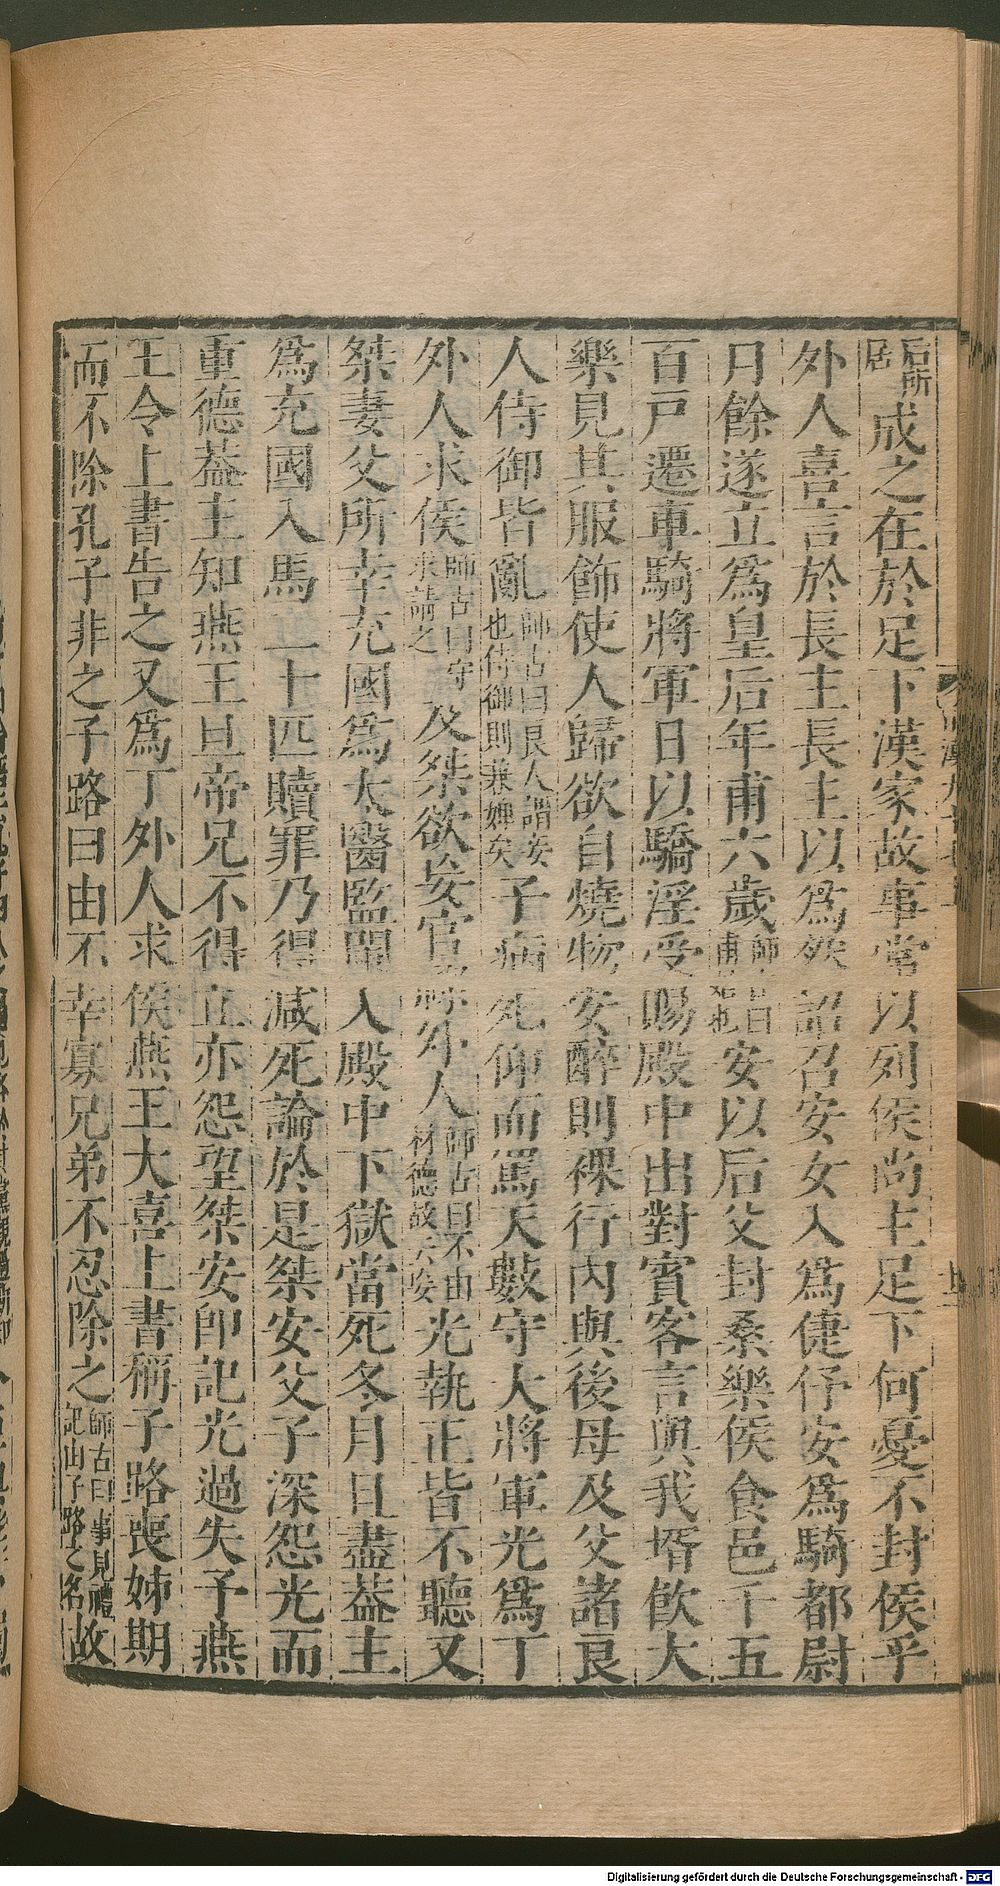 后所居成之在於足下漢家故事常以列侯尚主足下何憂不封侯乎
外人喜言於長主長主以爲然詔召安女入爲倢伃安爲騎都尉
月餘遂立爲皇后年甫六歲師 曰甫 也安以后父封桑樂侯食邑千五
百戸遷車騎將軍日以驕淫受賜殿中出對賓客言與我壻飮大
樂見其服飾使人歸欲自燒物安醉則裸行內與後母及父諸良
人侍御皆亂師古曰良人謂妾也侍御則兼婢矣子病死仰而罵天數守大將軍光爲丁
外人求侯師古曰守求請之及桀欲妄官祿外人師古曰不由材德故云妄光執正皆不聽又
桀妻父所幸充國爲太醫監闌入殿中下獄當死冬月且盡葢主
爲充國入馬二十匹贖罪乃得減死論於是桀安父子深怨光而
重德葢主知燕王旦帝兄不得立亦怨望桀安卽記光過失予燕
王令上書告之又爲丁外人求侯燕王大喜上書稱子路喪姊期
而不除孔子非之子路曰由不幸寡兄弟不忍除之師古曰事見禮記由子路之名故
Digitalisierung gefördert durch die Deutsche Forschungsgemeinschaft - DFG